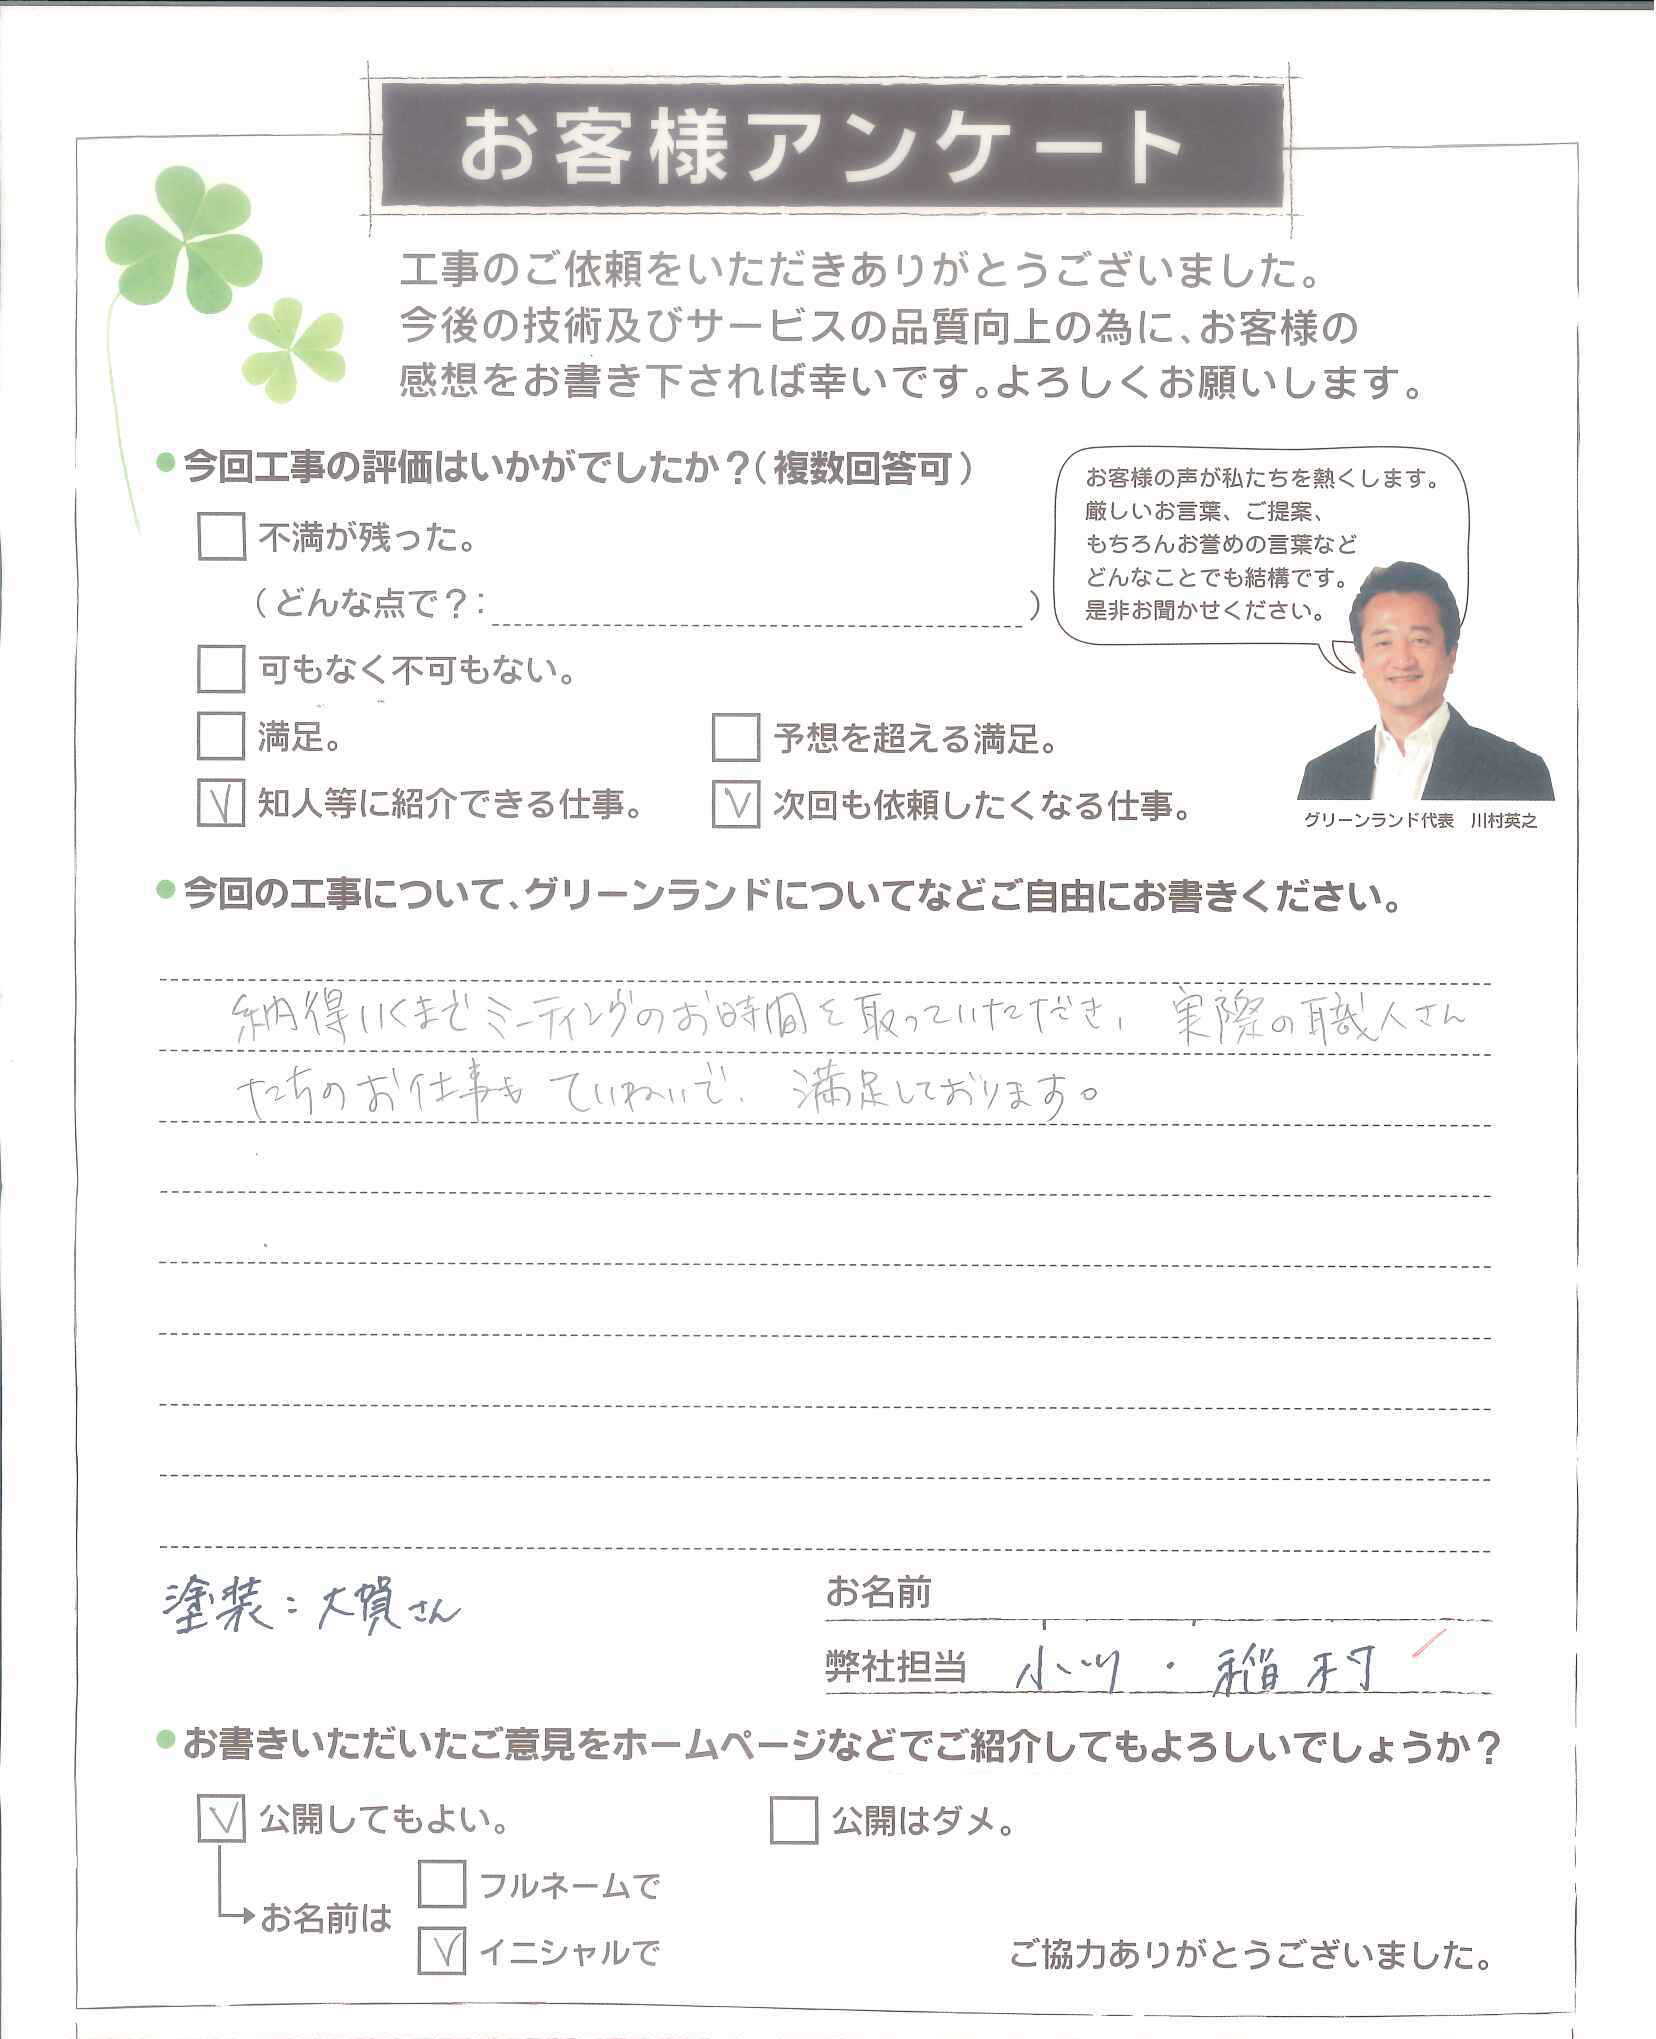 お客様アンケート
工事のご依頼をいただきありがとうございました。
今後の技術及びサービスの品質向上の為に、お客様の
感想をお書き下されば幸いです。よろしくお願いします。
今回工事の評価はいかがでしたか？（複数回答可）
不満が残った。
（どんな点で？：　）
可もなく不可もない。
満足。
予想を超える満足。
知人等に紹介できる仕事。
次回も依頼したくなる仕事。
お客様の声が私たちを熱くします。
厳しいお言葉、ご提案、
もちろんお誉めの言葉など
どんなことでも結構です。
是非お聞かせください。
グリーンランド代表　川村英之
今回の工事について、グリーンランドについてなどご自由にお書きください。
納得いくまでミーティングのお時間を取っていただき、実際の職人さん
たちのお仕事もていねいで、満足しております。
塗装：大賀さん
お名前
弊社担当　小川・稲村
お書きいただいたご意見をホームページなどでご紹介してもよろしいでしょうか？
公開してもよい。
公開はダメ。
お名前は
フルネームで
イニシャルで
ご協力ありがとうございました。